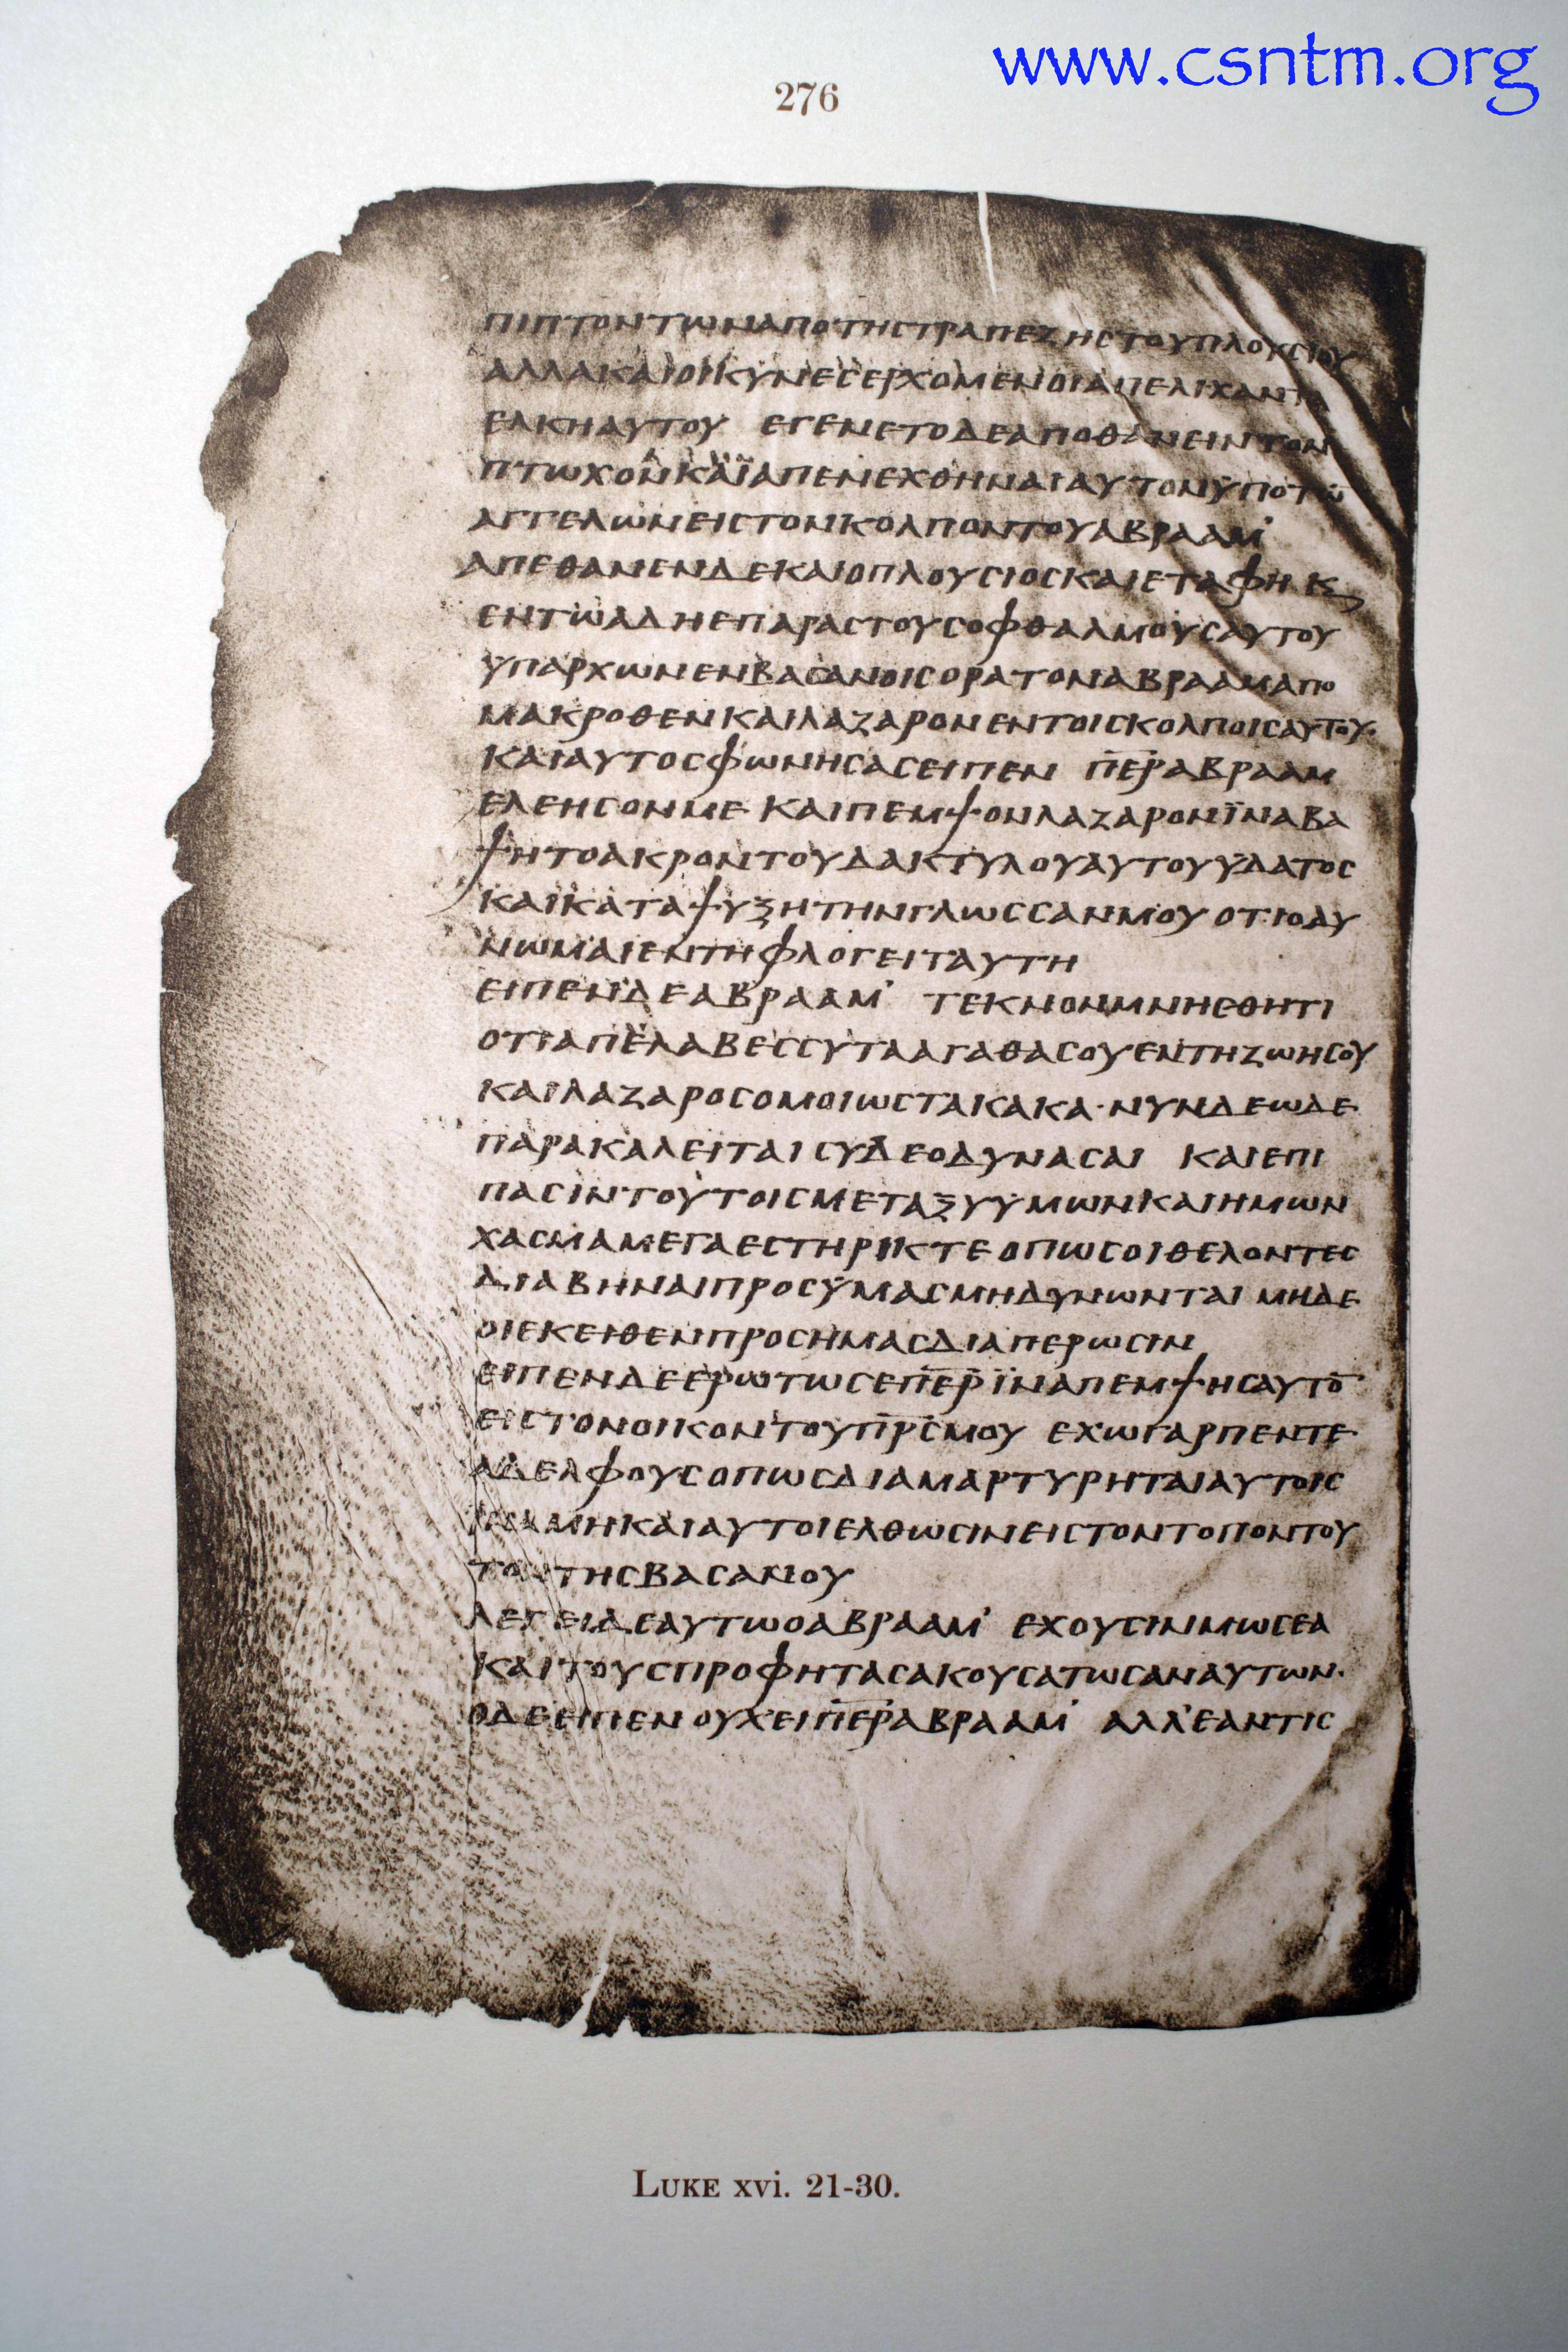 www.csntm.org
276
ΠΙΠΤΟΝΤΩΝΑΠΟΤΗCΤΡΑΠΕΖΗCΤΟΥΠΛΟΥCΙΟΥ
ΑΛΛΑΚΑΙΟΙΚΥΝΕCΕΡΧΟΜΕΝΟΙΑΠΕΛΙΧΑΝΤΑ
ΕΛΚΗΑΥΤΟΥ ΕΓΕΝΕΤΟΔΕΑΠΟΘΑΝΕΙΝΤΟΝ
ΠΤΩΧΟΝΚΑΪΑΠΕΝΕΧΘΗΝΑΙΑΥΤΟΝΫΠΟΤΩ̅
ΑΓΓΕΛΩΝΕΙCΤΟΝΚΟΛΠΟΝΤΟΥΑΒΡΑΑΜ'
ΑΠΕΘΑΝΕΝΔΕΚΑΙΟΠΛΟΥCΙΟCΚΑΙΕΤΑΦΗ Κ
ΕΝΤΩΑΔΗΕΠΑΡΑCΤΟΥCΟΦΘΑΛΜΟΥCΑΥΤΟΥ
ΥΠΑΡΧΩΝΕΝΒΑCΑΝΟΙCΟΡΑΤΟΝΑΒΡΑΑΜΑΠΟ
ΜΑΚΡΟΘΕΝΚΑΙΛΑΖΑΡΟΝΕΝΤΟΙCΚΟΛΠΟΙCΑΥΤΟΥ·
ΚΑΙΑΥΤΟCΦΩΝΗCΑCΕΙΠΕΝ Π̅Ε̅Ρ̅ΑΒΡΑΑΜ
ΕΛΕΗCΟΝΜΕ ΚΑΙΠΕΜΨΟΝΛΑΖΑΡΟΝΪΝΑΒΑ
ΨΗΤΟΑΚΡΟΝΤΟΥΔΑΚΤΥΛΟΥΑΥΤΟΥΫΔΑΤΟC
ΚΑΙΚΑΤΑΨΥΞΗΤΗΝΓΛΩCCΑΝΜΟΥ ΟΤΙΟΔΥ
ΝΩΜΑΙΕΝΤΗΦΛΟΓΕΙΤΑΥΤΗ
ΕΙΠΕΝΔΕΑΒΡΑΑΜ' ΤΕΚΝΟΝΜΝΗCΘΗΤΙ
ΟΤΙΑΠΕΛΑΒΕCCΥΤΑΑΓΑΘΑCΟΥΕΝΤΗΖΩΗCΟΥ
ΚΑΙΛΑΖΑΡΟCΟΜΟΙΩCΤΑΚΑΚΑ·ΝΥΝΔΕΩΔΕ
ΠΑΡΑΚΑΛΕΙΤΑΙ CΥΔΕΟΔΥΝΑCΑΙ ΚΑΙΕΠΙ
ΠΑCΙΝΤΟΥΤΟΙCΜΕΤΑΞΥΫΜΩΝΚΑΙΗΜΩΝ
ΧΑCΜΑΜΕΓΑΕCΤΗΡΙΚΤΕ ΟΠΩCΟΙΘΕΛΟΝΤΕC
ΔΙΑΒΗΝΑΙΠΡΟCΫΜΑCΜΗΔΥΝΩΝΤΑΙ ΜΗΔΕ
ΟΙΕΚΕΙΘΕΝΠΡΟCΗΜΑCΔΙΑΠΕΡΩCΙΝ
ΕΙΠΕΝΔΕΕΡΩΤΩCΕΠ̅Ε̅Ρ̅ΪΝΑΠΕΜΨΗCΑΥΤΟ̅
ΕΙCΤΟΝΟΙΚΟΝΤΟΥΠ̅Ρ̅C̅ΜΟΥ ΕΧΩΓΑΡΠΕΝΤΕ
ΑΔΕΛΦΟΥCΟΠΩCΔΙΑΜΑΡΤΥΡΗΤΑΙΑΥΤΟΙC
ΙΝΑΜΗΚΑΙΑΥΤΟΙΕΛΘΩCΙΝΕΙCΤΟΝΤΟΠΟΝΤΟΥ
ΤΟΝΤΗCΒΑCΑΝΟΥ
ΛΕΓΕΙΔΕΑΥΤΩΟΑΒΡΑΑΜ' ΕΧΟΥCΙΝΜΩCΕΑ
ΚΑΙΤΟΥCΠΡΟΦΗΤΑCΑΚΟΥCΑΤΩCΑΝΑΥΤΩΝ·
ΟΔΕΕΙΠΕΝ ΟΥΧΕΙΠ̅Ε̅Ρ̅ΑΒΡΑΑΜ' ΑΛΛ'ΕΑΝΤΙC
LUKE xvi. 21-30.